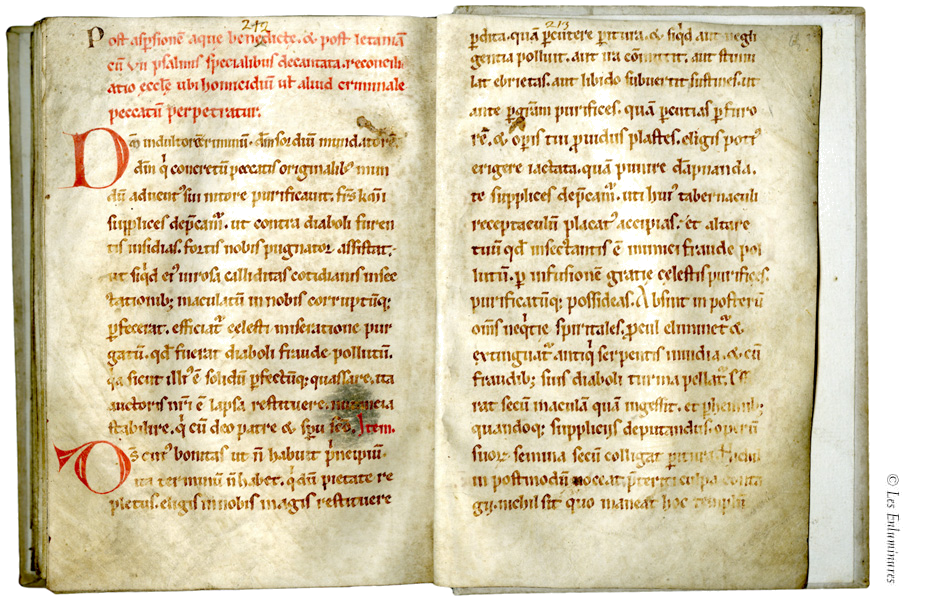 242
Post asp̄sionē aque benedicte. & post letaniā
cū vii psalmis specialibus decantata. reconcili
atio eccl̄e ubi homicidiū ul̓ aliud criminale
peccatū perpetratur.
Dm̄ indultorē criminū. dm̄ sordiū mundatorē.
dm̄ q̓ concretū peccatis originalib; mun
dū aduent᷒ sui nitore purificauit. fr̄s km̄i
supplices dep̄cam᷒. ut contra diaboli furen
tis insidias. fortis nobis pugnator assistat.
ut siq̄d ei᷒ uirosa calliditas cotidianis infec
tationib; maculatū in nobis corruptūq;
p̱fecerat. efficiat᷒ celesti miseratione pur
gatū. qd̄ fuerat diaboli fraude pollutū.
q̓a sicut illi᷒ ē solidū p̱fectūq; quassare. ita
auctoris nr̄i ē lapsa restituere.
stabilire. q̓ cū deo patre & sp̄u sc̄o. Item.
Ds̄ cui᷒ bonitas ut n̄ habuit p̓ncipiū.
ita terminū n̄ habet. q̓ dm̄ pietate re
pletus. eligis in nobis magis restituere
213
p̱dita. quā p̱cutere p̱itura. & siq̄d aut negli
gentia polluit. aut ira cōmittit. aut stimu
lat ebrietas. aut libido subuertit. sustines. ut
ante p̱ gr̄am purifices. quā p̱cutias p̱ furo
rē. & op̱is tui p̓uidus plastes. eligis poti᷒
erigere iactata. quā punire dāpnanda.
te supplices dep̄cam᷒. uti hui᷒ tabernaculi
receptaculū placat᷒ accipias. et altare
tuū qd̄ insectantis ē inimici fraude pol
lutū. p̱ infusionē gratie celestis purifices.
purificatūq; possideas. Absint in posterū
om̄s neq̓tie spiritales. p̓cul eliminet᷒ &
extinguat᷒ antiq̓ serpentis inuidia. & cū
fraudib; suis diaboli turma pellat᷒.
rat secū maculā quā ingessit. et phennib;
quandoq; suppliciis deputandus. operū
suor᷒ semina secū colligat p̱itura.
in postmodū noceat p̓teriti culpa conta
gii. nichil sit quo maneat hoc templū
© Les Enluminures